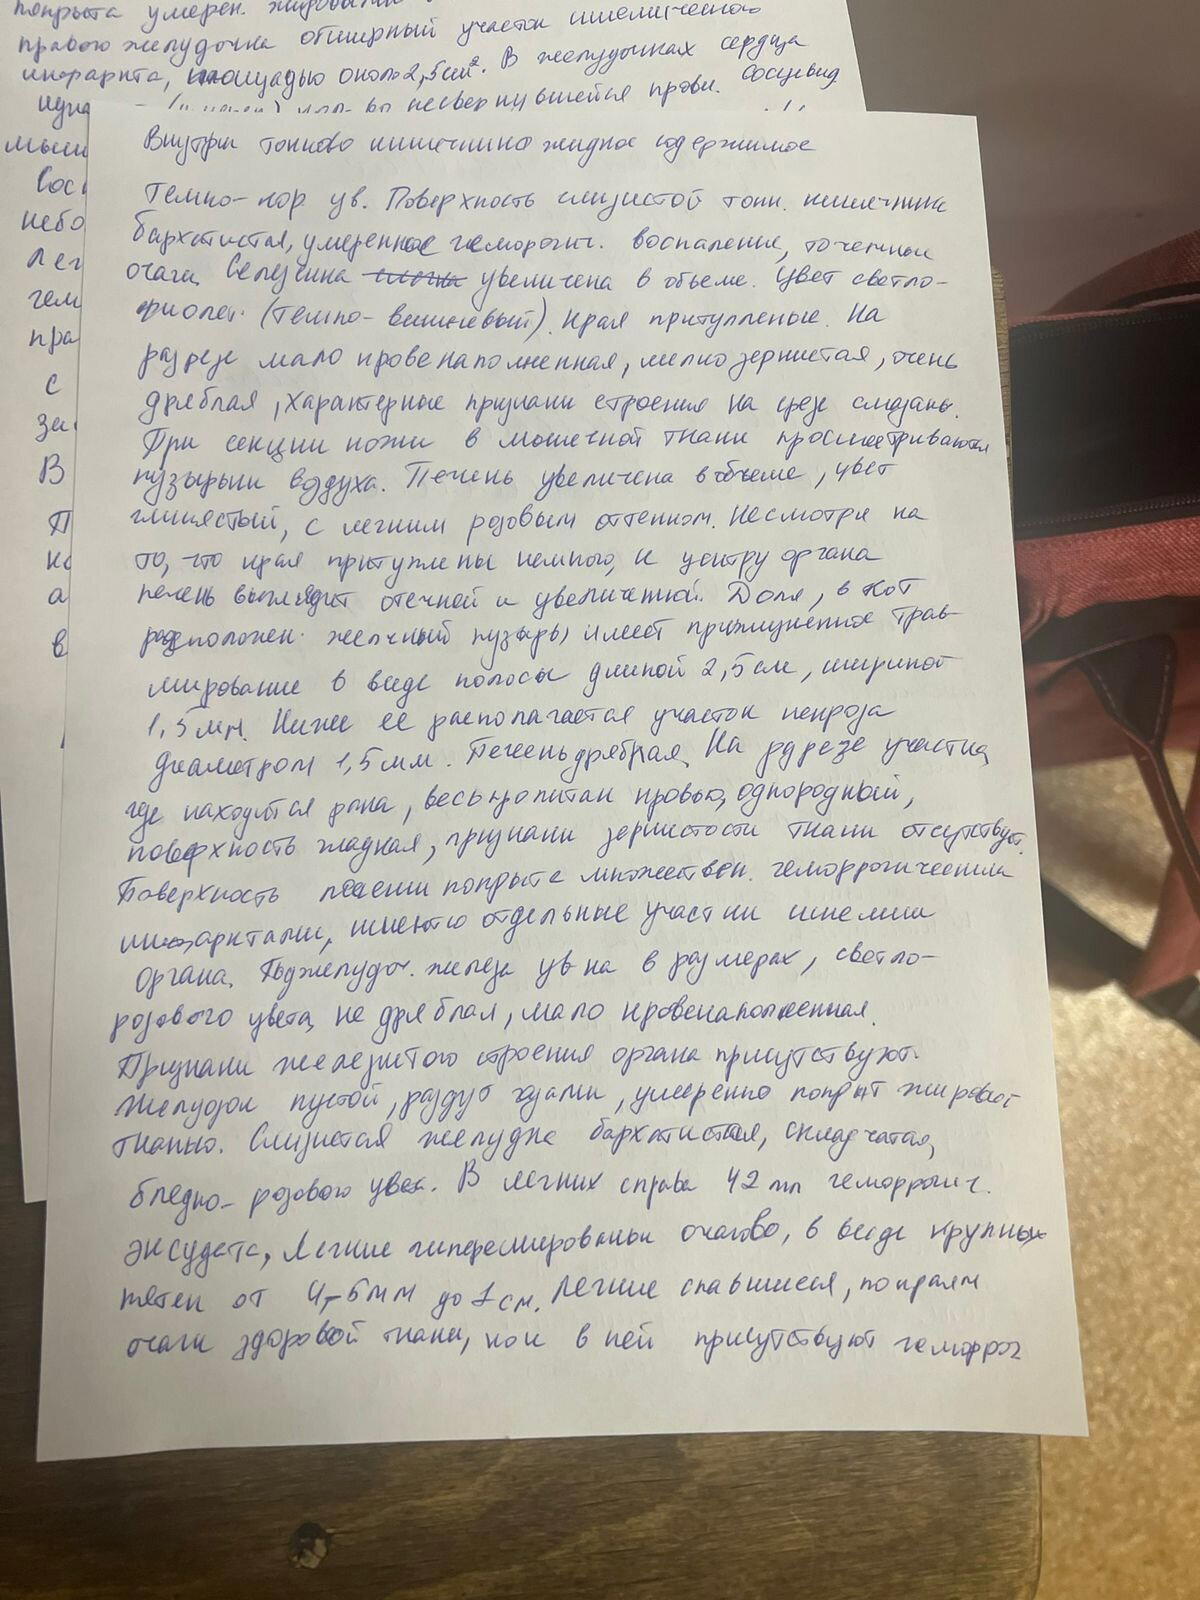 покрыта умерен. жировой
правого желудочка обширный участок ишемического
инфаркта, площадью около 2,5 см². В желудочках сердца
несвернувшейся крови. Сосцевид
мыш
Сос
небо
Лег
гем
пра
с
за
В
П
на
а
в
Внутри тонково кишечника жидкое содержимое
темно-кор. цв. Поверхность слизистой тонк. кишечника
бархатистая, умеренное геморогич. воспаление, точечные
очаги. Селезенка увеличена в объеме. Цвет светло-
фиолет. (темно-вишневый). Края притупленые. На
разрезе мало кровенаполненная, мелкозернистая, очень
дряблая, характерные признаки строения на срезе смазаны.
При секции кожи в мышечной ткани просматриваются
пузырьки воздуха. Печень увеличена в объеме, цвет
глинястый, с легким розовым оттенком. Несмотря на
то, что края притуплены немного, к центру органа
печень выглядит отечной и увеличеной. Доля, в кот
расположен. желчный пузырь, имеет прижизненное трав-
мирование в виде полосы длиной 2,5 см, шириной
1,5 мм. Ниже ее располагается участок некроза
диаметром 1,5 мм. Печень дряблая. На разрезе участка,
где находится рана, весь пропитан кровью, однородный,
поверхность жидкая, признаки зернистости ткани отсутствуют.
Поверхность печени покрыта множествен. геморрогическими
инфарктами, имеются отдельные участки ишемии
органа. Поджелудоч. железа ув-на в размерах, светло-
розового цвета, не дряблая, мало кровенаполненная.
Признаки железистого строения органа присутствуют.
Желудок пустой, раздут газами, умеренно покрыт жировой
тканью. Слизистая желудка бархатистая, складчатая,
бледно-розового цвета. В легких справа 42 мл геморрогич.
эксудата, Легкие гиперемированы очагово, в виде крупных
пятен от 4-6мм до 1 см. Легкие спавшиеся, по краям
очаги здоровой ткани, но и в ней присутствуют геморрог